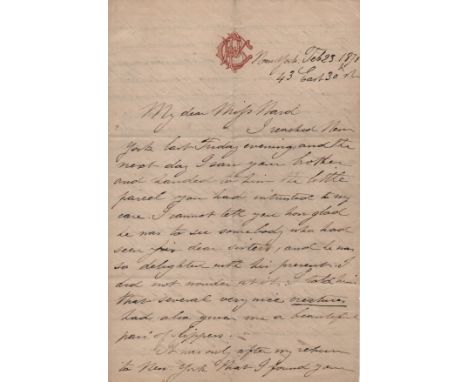 New York. Feb 23. 187
43 East 30th St
My dear Miss Ward
I reached New
York last Friday evening and the
next day I saw your brother
and handed to him the little
parcel you had intrusted to my
care. I cannot tell you how glad
he was to see somebody who had
seen his dear sisters, and he was
so delighted with his present. I
did not wonder at it. I told him
that several very nice creatures
had also given me a beautiful
pair of slippers. —
It was only after my return
to New York that I found your